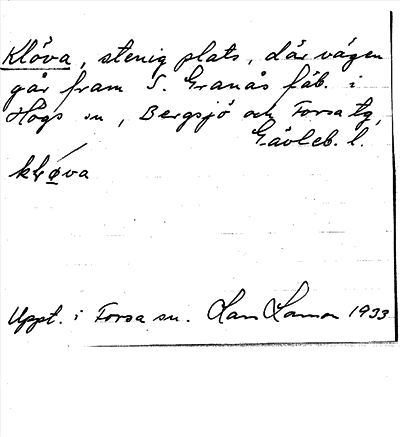 Klöva, stenig plats, där vägen
går fram S. Granås fäb. i
Högs sn, Bergsjö och Forsa tg,
Gävleb. l.
klø̄va
Uppt. i Forsa sn. Lars Larson 1933